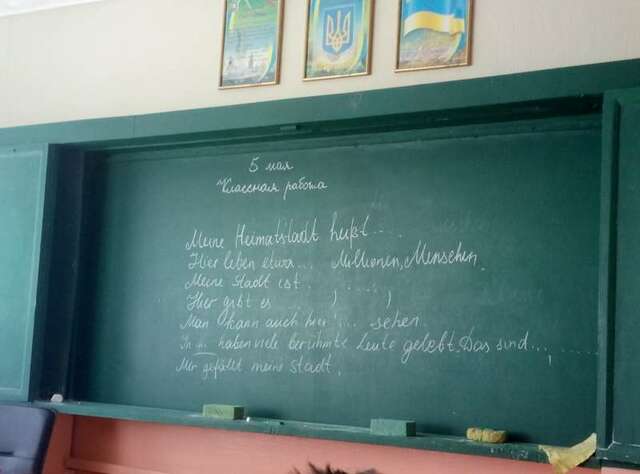 5 мая
Классная работа
Meine Heimatstadt heißt....
Hier leben etwa... Millionen, Menschen.
Meine Stadt ist. ....
Hier gibt es ) )
Man kann auch hier ... sehen.
In ... haben viele berühmte Leute gelebt. Das sind...,
Mir gefällt meine Stadt.